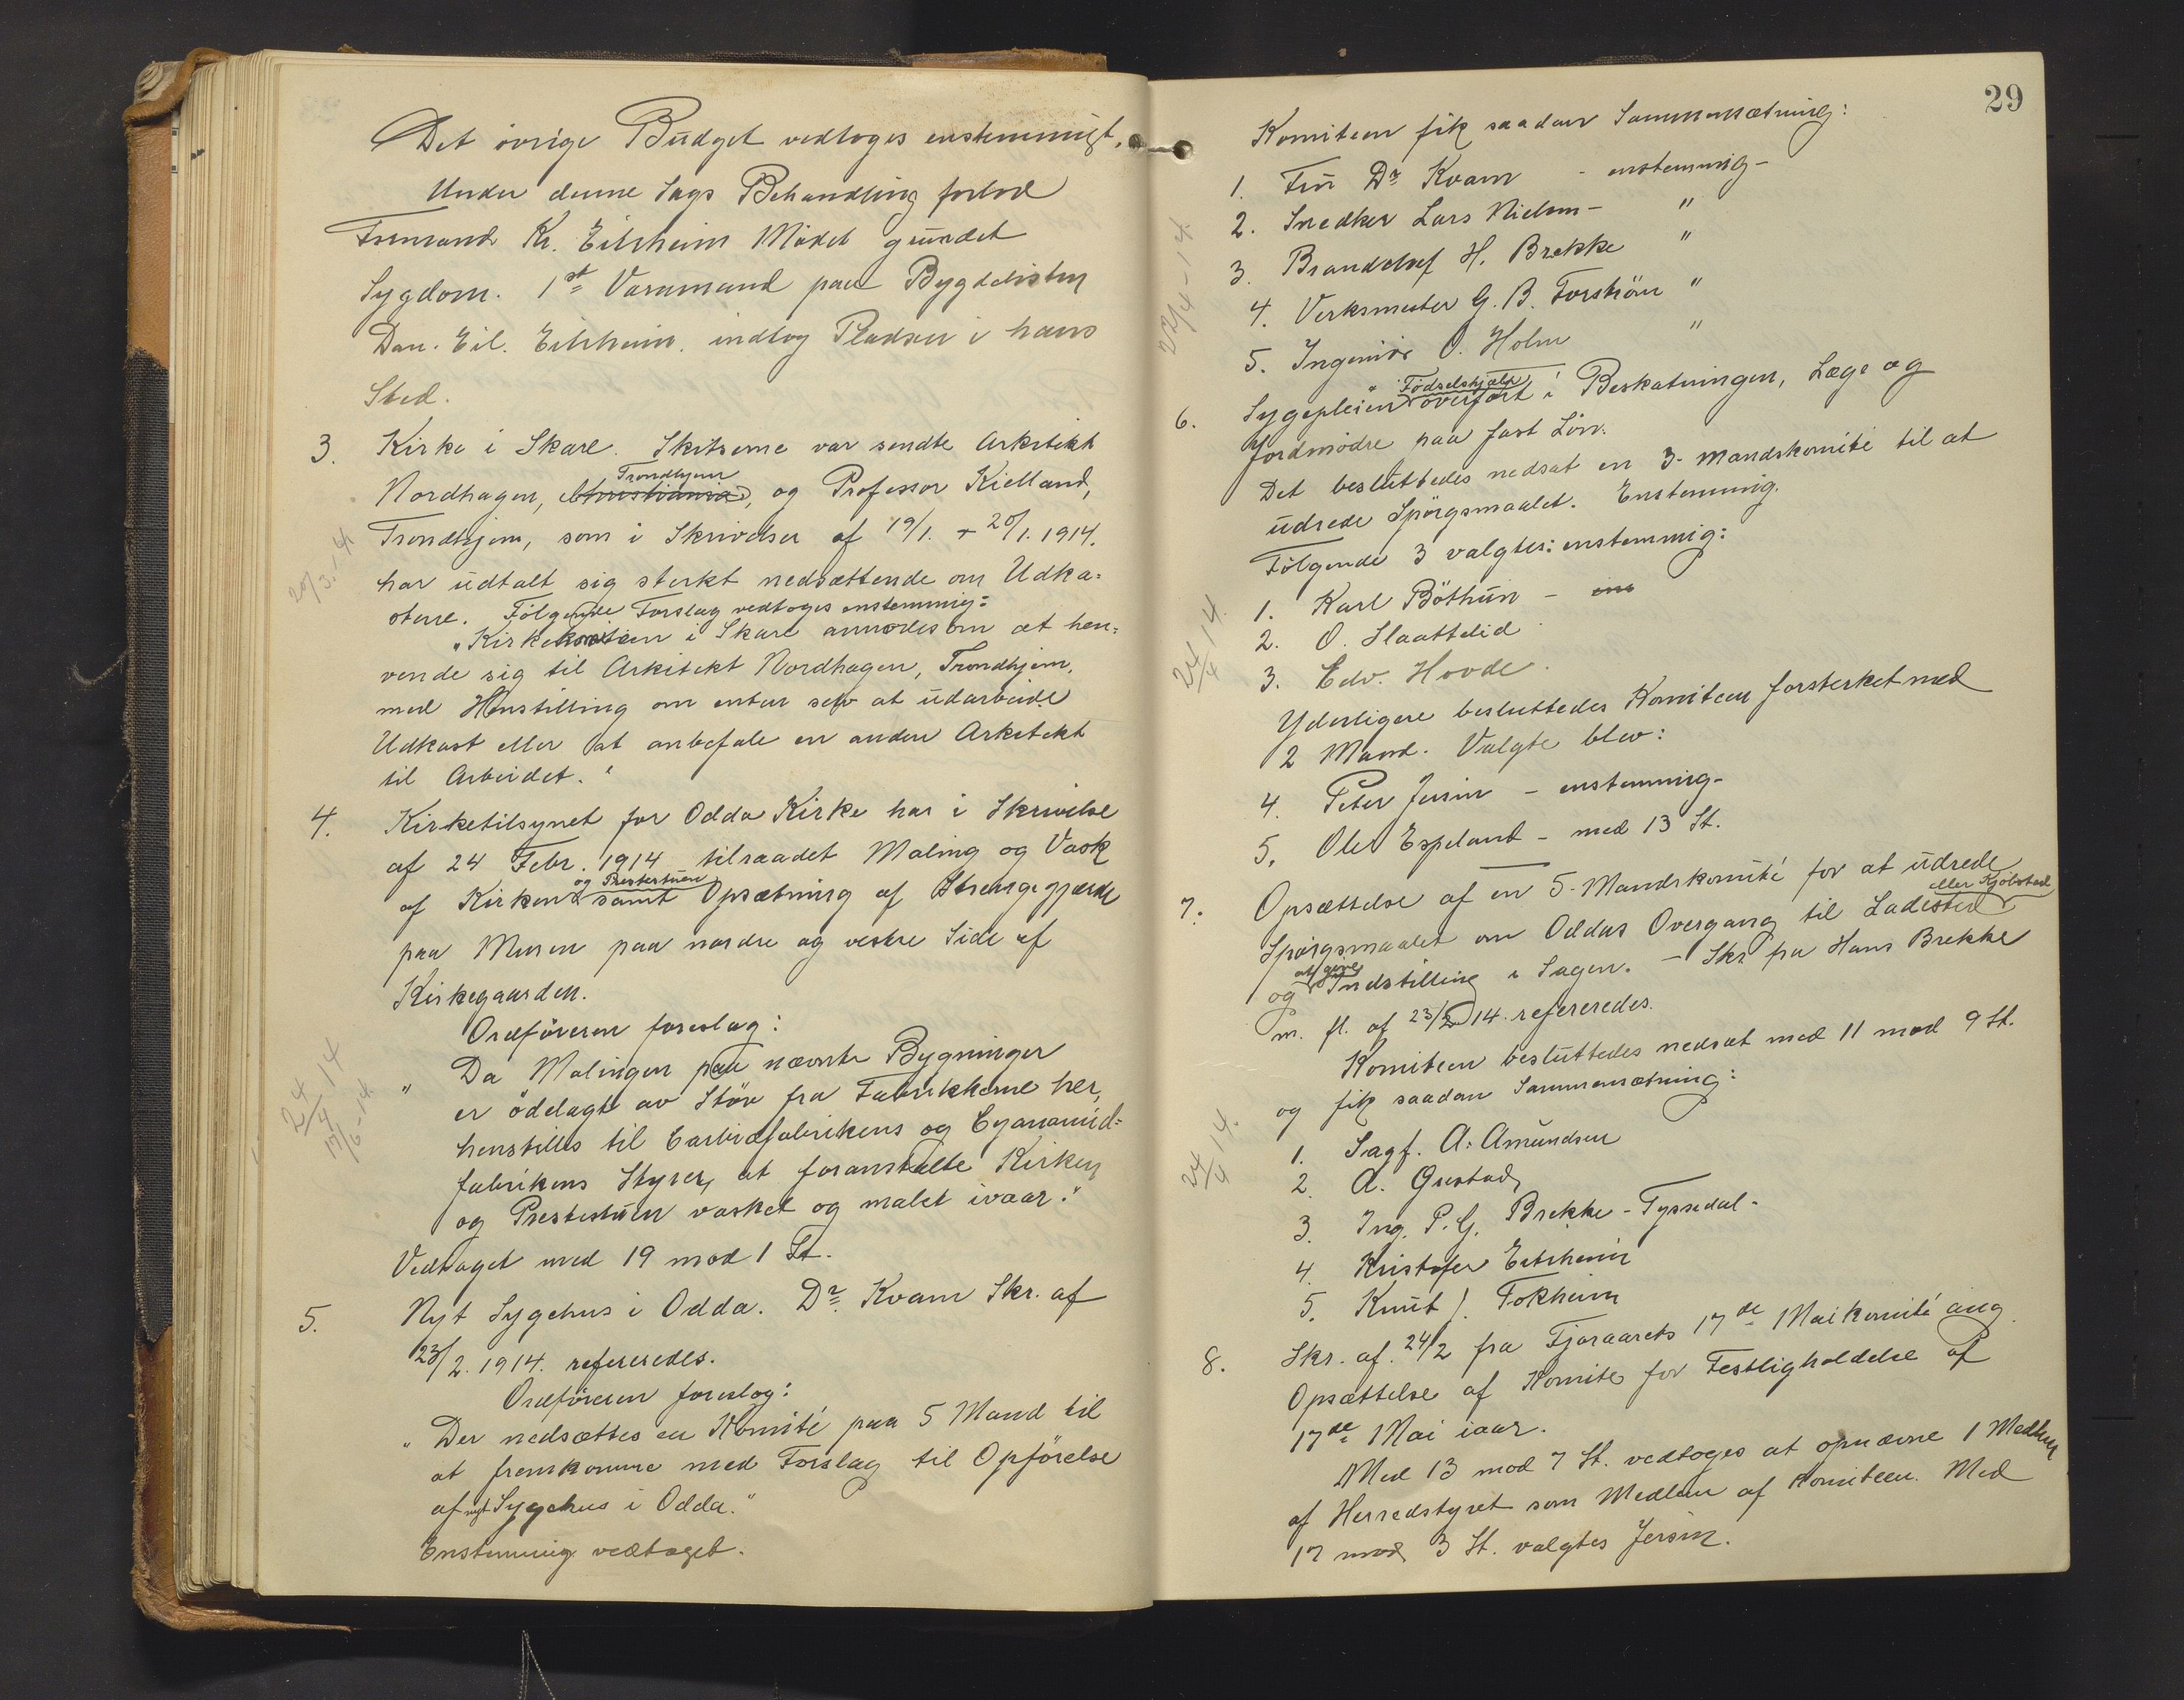 Det övrige Budget vedtoges enstemmigt.
Under denne Sags Behandling forlod
Formand Kr. Eitrheim Mödet grundet
Sygdom. 1st Varamand paa Bygdelisten
Dan. Eil. Eitrheim. indtog Pladsen i hans
Sted.
3. Kirke i Skare. Skitserne var sendte Arkitekt
Trondhjem
Nordhagen, Christiania, og Professor Kielland,
Trondhjem, som i Skrivelser af 19/1. + 20/1. 1914.
20/3. 14.
har udtalt sig sterkt nedsættende om Udka-
stene. Fölgende Forslag vedtoges enstemmig:
"Kirkekomiteen i Skare anmodes om at hen-
vende sig til Arkitekt Nordhagen, Trondhjem,
med Henstilling om enten selv at udarbeide
Udkast eller at anbefale en anden Arkitekt
til Arbeidet."
4. Kirketilsynet for Odda Kirke har i Skrivelse
af 24 Febr. 1914 tilraadet Maling og Vask
og Prestestuen
af Kirken samt Opsætning af Strengegjærde
paa Muren paa nordre og vestre Side af
Kirkegaarden.
Ordföreren foreslog:
24/4 14
17/6-14.
" Da Malingen paa nævnte Bygninger
er ödelagt av Støv fra Fabrikkerne her,
henstilles til Carbidfabrikens og Cyanamid-
fabrikens Styrer, at foranstalte Kirken
og Prestestuen vasket og malet ivaar."
Vedtaget med 19 mod 1 St.
5. Nyt Sygehus i Odda. Dr. Kvam Skr. af
23/2. 1914. refereredes.
Ordföreren foreslog:
"Der nedsættes en Komité paa 5 Mand til
at fremkomme med Forslag til Opförelse
af nyt Sygehus i Odda."
Enstemmig vedtaget.
29
Komiteen fik saadan Sammensætning:
1. Fru Dr Kvam - enstemmig -
2. Snedker Lars Nielsen - "
22/4-14.
3. Brandchef H. Brekke "
4. Verksmester G. B. Forström "
5. Ingeniör O. Holm "
Födselshjælp
6. Sygepleien overfört i Beskatningen, Læge og
Jordmödre paa fast Lön.
Det besluttedes nedsat en 3-mandskomité til at
udrede Spörgsmaalet. Enstemmig.
Fölgende 3 valgtes: enstemmig:
1. Karl Böthun - ens
24/4 14.
2. O. Slaattelid
3. Edv. Hovde.
Yderligere besluttedes Komiteen forsterket med
2 Mand. Valgte blev:
4. Peter Jersin - enstemmig -
5. Olav Espeland - med 13 St.
7. Opsættelse af en 5-Mandskomité for at udrede
eller Kjöbstad
Spörgsmaalet om Oddas Overgang til Ladested
at give
og Indstilling i Sagen. - Skr fra Hans Brekke
m. fl. af 23/2 14. refereredes.
Komiteen besluttedes nedsat med 11 mod 9 St.
og fik saadan Sammensætning:
24/4 14.
1. Sagf. A. Amundsen
2. A. Grestad,
3. Ing. P. G. Brekke - Tyssedal -
4. Kristofer Eitrheim
5. Knut J. Tokheim
8. Skr. af. 24/2 fra Fjoraarets 17de Maikomité ang
Opsættelse af Komite for Festligholdelse af
17de Mai iaar.
Med 13 mod 7 St. vedtoges at opnævne 1 Medlem
af Herredstyret som Medlem af Komiteen. Med
17 mod 3 St. valgtes Jersin.